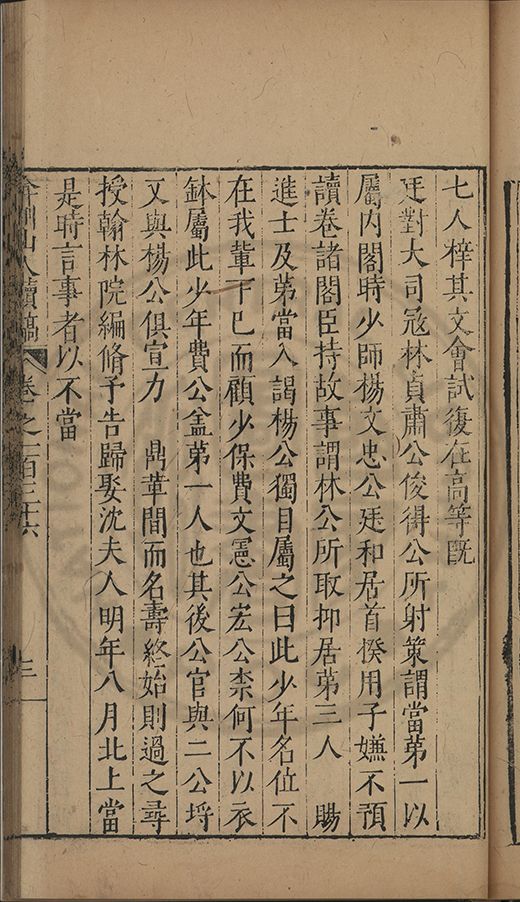 七人梓其文會試復在高等既
廷對大司冦林貞肅公俊得公所射策謂當第一以
屬内閣時少師楊文忠公廷和居首揆用子嫌不預
讀卷諸閣臣持故事謂林公所取抑居苐三人　賜
進士及苐當入謁楊公獨目屬之曰此少年名位不
在我輩下已而顧少保費文憲公宏公柰何不以衣
鉢屬此少年費公盖苐一人也其後公官與二公埒
又與楊公俱宣力　鼎革間而名壽終始則過之尋
授翰林院編脩予告歸娶沈夫人明年八月北上當
是時言事者以不當
弇州山人續稿 卷之一百三十六 三